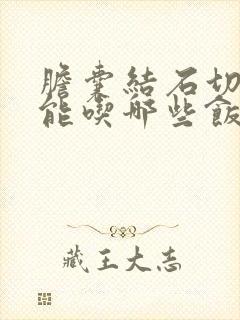 膽囊結石切
能喫哪些飯
藏王大志